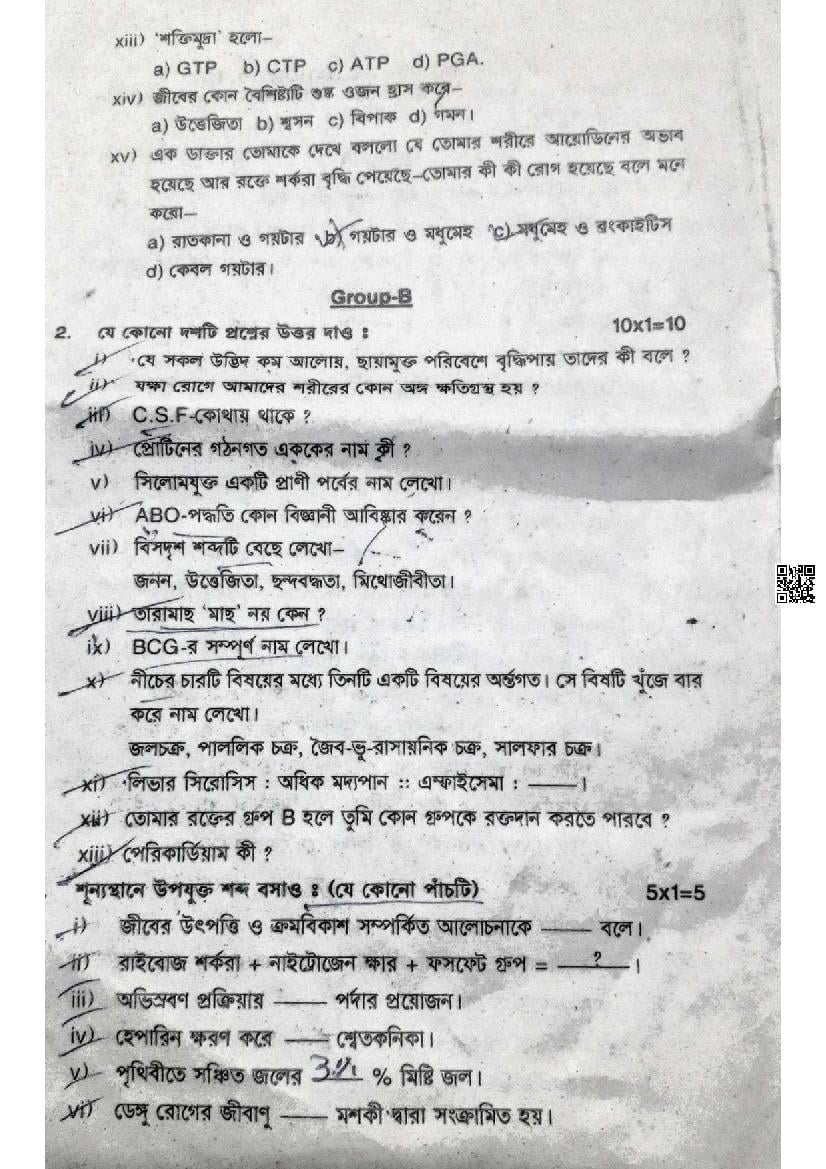 xiii) 'শক্তিমুদ্রা' হলো–
a) GTP b) CTP c) ATP d) PGA.
xiv) জীবের কোন বৈশিষ্ট্যটি শুষ্ক ওজন হ্রাস করে–
a) উত্তেজিতা b) শ্বসন c) বিপাক d) গমন।
xv) এক ডাক্তার তোমাকে দেখে বললো যে তোমার শরীরে আয়োডিনের অভাব
হয়েছে আর রক্তে শর্করা বৃদ্ধি পেয়েছে–তোমার কী কী রোগ হয়েছে বলে মনে
করো–
a) রাতকানা ও গয়টার b) গয়টার ও মধুমেহ c) মধুমেহ ও ব্রংকাইটিস
d) কেবল গয়টার।
Group-B
2. যে কোনো দশটি প্রশ্নের উত্তর দাও : 10x1=10
i) যে সকল উদ্ভিদ কম আলোয়, ছায়াযুক্ত পরিবেশে বৃদ্ধিপায় তাদের কী বলে ?
ii) যক্ষা রোগে আমাদের শরীরের কোন অঙ্গ ক্ষতিগ্রস্থ হয় ?
iii) C.S.F-কোথায় থাকে ?
iv) প্রোটিনের গঠনগত এককের নাম কী ?
v) সিলোমযুক্ত একটি প্রাণী পর্বের নাম লেখো।
vi) ABO-পদ্ধতি কোন বিজ্ঞানী আবিষ্কার করেন ?
vii) বিসদৃশ শব্দটি বেছে লেখো–
জনন, উত্তেজিতা, ছন্দবদ্ধতা, মিথোজীবীতা।
viii) তারামাছ 'মাছ' নয় কেন ?
ix) BCG-র সম্পূর্ণ নাম লেখো।
x) নীচের চারটি বিষয়ের মধ্যে তিনটি একটি বিষয়ের অর্ন্তগত। সে বিষটি খুঁজে বার
করে নাম লেখো।
জলচক্র, পাললিক চক্র, জৈব-ভূ-রাসায়নিক চক্র, সালফার চক্র।
xi) লিভার সিরোসিস : অধিক মদ্যপান :: এম্ফাইসেমা : ——।
xii) তোমার রক্তের গ্রুপ B হলে তুমি কোন গ্রুপকে রক্তদান করতে পারবে ?
xiii) পেরিকার্ডিয়াম কী ?
শূন্যস্থানে উপযুক্ত শব্দ বসাও : (যে কোনো পাঁচটি) 5x1=5
i) জীবের উৎপত্তি ও ক্রমবিকাশ সম্পর্কিত আলোচনাকে —— বলে।
ii) রাইবোজ শর্করা + নাইট্রোজেন ক্ষার + ফসফেট গ্রুপ = —?—।
iii) অভিস্রবণ প্রক্রিয়ায় —— পর্দার প্রয়োজন।
iv) হেপারিন ক্ষরণ করে —— শ্বেতকনিকা।
v) পৃথিবীতে সঞ্চিত জলের 3% % মিষ্টি জল।
vi) ডেঙ্গু রোগের জীবাণু —— মশকী দ্বারা সংক্রামিত হয়।